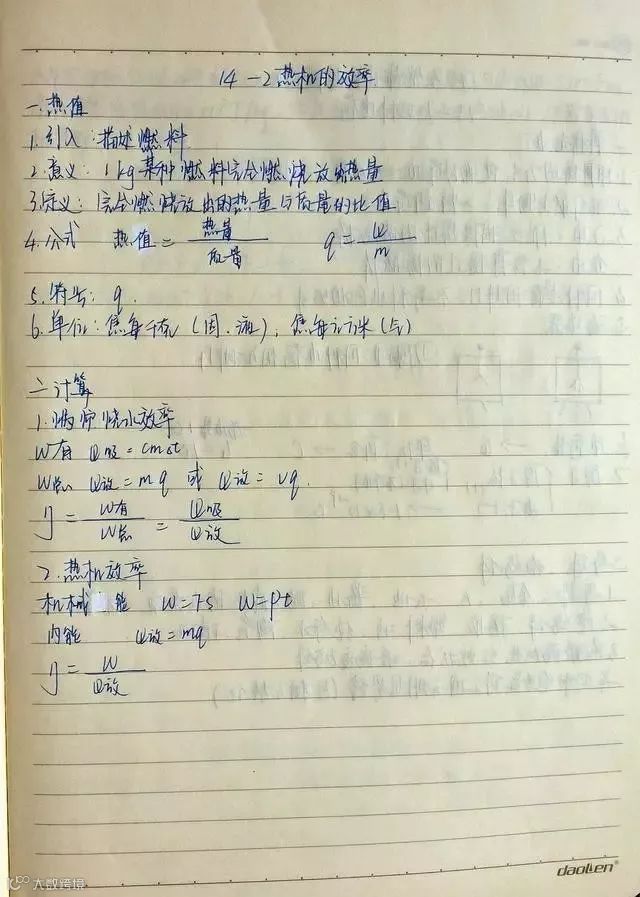 14-2热机的效率
一.热值
1.引入:描述燃料
2.意义:1kg某种燃料完全燃烧放出热量
3.定义:完全燃烧放出的热量与质量的比值
4.公式 热值=热量/质量 q=Q/m
5.符号:q.
6.单位:焦每千克(固.液),焦每立方米(气)
二.计算
1.炉烧水效率
W有 Q吸=cmΔt
W总 Q放=mq 或 Q放=vq.
η=W有/W总=Q吸/Q放
2.热机效率
机械能 W=Fs W=Pt
内能 Q放=mq
η=W/Q放
daolen®
大数跨境